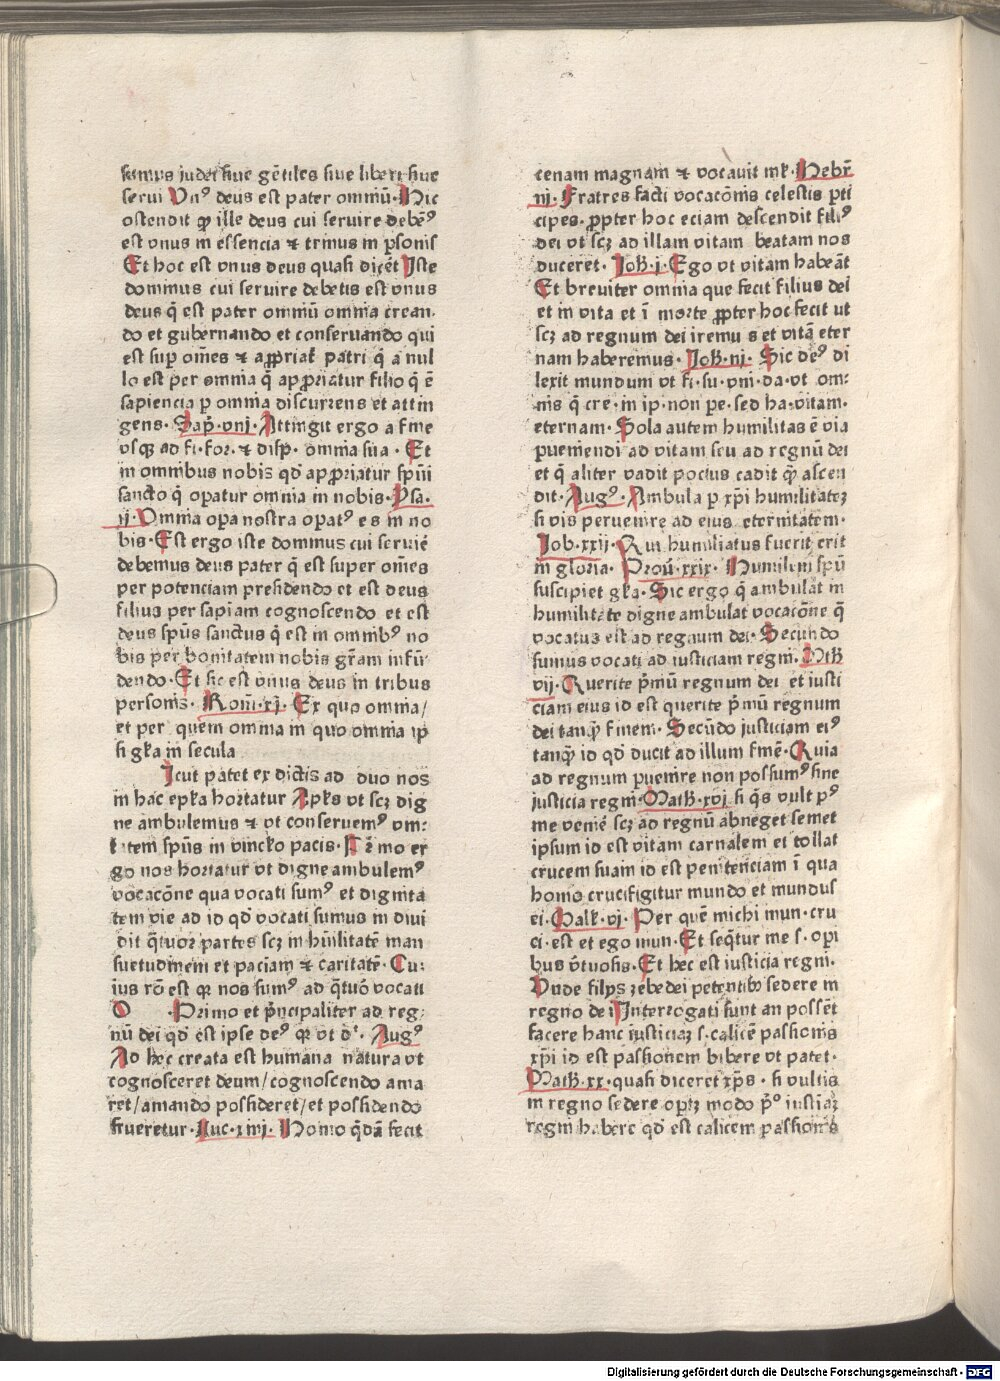 sumus judei siue gẽtiles siue liberi siue
serui Vnꝰ deus est pater omniũ· Hic
ostendit ꝙ ille deus cui seruire debẽꝰ
est vnus in essencia ⁊ trinus in ꝑsonis
Et hoc est vnus deus quasi dicẽt Iste
dominus cui seruire debetis est vnus
deus q̃ est pater omniũ omnia crean·
do et gubernando et conseruando qui
est suꝑ om̃es ⁊ aꝓpriat᷑ patri q̃ a nul
lo est per omnia q̃ apꝓpriatur filio q̃ ẽ
sapiencia ꝑ omnia discurrens et attin
gens· Sap̃· viij· Attingit ergo a fine
vsqꝫ ad fi·for· ⁊ disp· omnia sua · Et
in omnibus nobis qd̃ apꝓpriatur spũi
sancto q̃ opatur omnia in nobis· Psa·
ij· Omnia oꝑa nostra opatꝰ es in no
bis· Est ergo iste dominus cui seruiẽ
debemus deus pater q̃ est super om̃es
per potenciam presidendo et est deus
filius per sapiam cognoscendo et est
deus spũs sanctus q̃ est in omnibꝰ no
bis per bonitatem nobis gr̃am infũ
dendo· Et sic est vnus deus in tribus
personis· Rom̃·xj· Ex quo omnia/
et per quem omnia in quo omnia ip
si gl̃ia in secula
Icut patet ex dictis ad duo nos
in hac ep̃la hortatur Apl̃s vt scꝫ dig
ne ambulemus ⁊ vt conseruemꝰ vni
tatem spũs in vinclo pacis· Primo er
go nos hortatur vt digne ambulemꝰ
vocacõne qua vocati sumꝰ et dignita
tem vie ad id qd̃ vocati sumus in diui
dit q̃tuor partes scꝫ in hũilitatẽ man
suetudinem et paciam ⁊ caritatẽ· Cu:
ius rõ est qꝛ nos sumꝰ ad q̃tuõ vocati
O · Primo et p̃ncipaliter ad reg:
nũ dei qd̃ est ipse deꝰ qꝛ vt d̃ꝰ· Augꝰ
Ad hec creata est humana natura vt
cognosceret deum/cognoscendo ama
ret/amando possideret/et possidendo
frueretur· Luc·xiiij· Homo q̃dã fecit
cenam magnam ⁊ vocauit ml̃· Hebr̃
iij· Fratres facti vocacõnis celestis ꝑti
cipes· ꝓpter hoc eciam descendit filiꝰ
dei vt scꝫ ad illam vitam beatam nos
duceret· Joh̃·j· Ego vt vitam habeãt
Et breuiter omnia que fecit filius dei
et in vita et ĩ morte ꝓpter hoc fecit ut
scꝫ ad regnum dei iremu s et vitã eter
nam haberemus· Joh̃·iij· Sic deꝰ di
lexit mundum vt fi·su·vni·da·vt om:
nis q̃ cre·in ip·non pe·sed ha·vitam·
eternam· Sola autem humilitas ẽ via
ꝑueniendi ad vitam seu ad regnũ dei
et q̃ aliter vadit pocius cadit q̃ꝫ ascen
dit· Augꝰ· Ambula ꝑ xp̃i humilitateꝫ
si vis peruenire ad eius eternitatem·
Job·xxij· Qui humiliatus fuerit erit
in gloria· Prou̇·xxix· Humilem spũ
suscipiet gl̃ia· Sic ergo q̃ ambulat in
humilitate digne ambulat vocacõne q̃
vocatus est ad regnum dei· Secundo
sumus vocati ad iusticiam regni· Mth̃
vij· Querite p̃mũ regnum dei et iusti
ciam eius id est querite p̃mũ regnum
dei tanqꝫ finem· Secũdo justiciam eiꝰ
tanqꝫ id qd̃ ducit ad illum finẽ· Quia
ad regnum ꝑuenire non possumꝰ sine
justicia regni· Math̃·xvj si q̃s vult pꝰ
me veniẽ scꝫ ad regnũ abneget semet
ipsum id est vitam carnalem et tollat
crucem suam id est penitenciam ĩ qua
homo crucifigitur mundo et mundus
ei· Galt̃·vj· Per quẽ michi mun·cru
ci·est et ego mun·Et seq̃tur me s·opi
bus v̇tuosis· Et hec est iusticia regni·
Vnde filijs zebedei petentibꝫ sedere in
regno dei Interrogati sunt an possẽt
facere hanc iusticiaꝫ s·calicẽ passionis
xp̃i id est passionem bibere vt patet·
Math̃·xx·quasi diceret xp̃s · si vultis
in regno sedere oportꝫ modo p̃º iustiaꝫ
regni habere qd̃ est calicem passionis
Digitalisierung gefördert durch die Deutsche Forschungsgemeinschaft - DFG